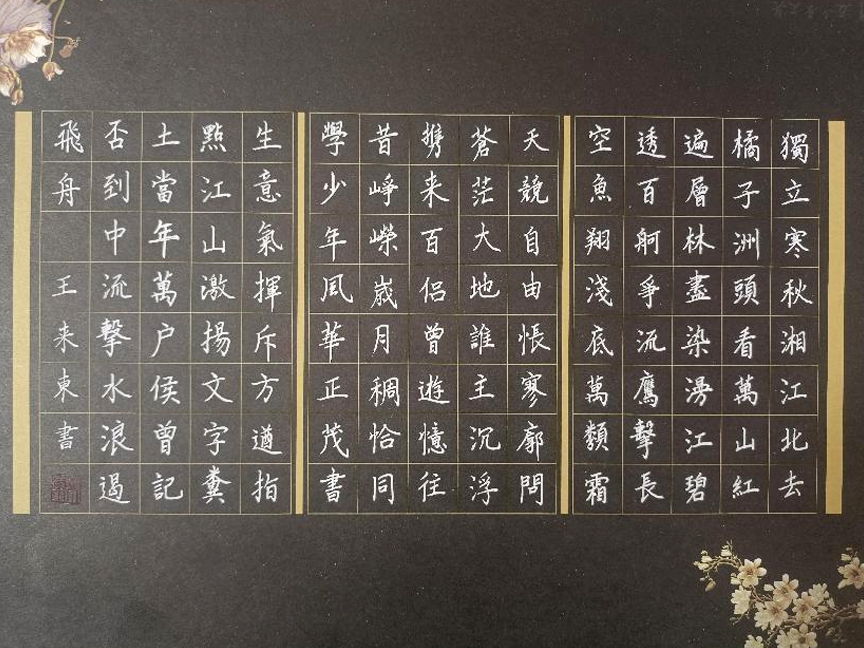 獨立寒秋湘江北去
橘子洲頭看萬山紅
遍層林盡染漫江碧
透百舸爭流鷹擊長
空魚翔淺底萬類霜
天競自由悵寥廓問
蒼茫大地誰主沉浮
携来百侶曾遊憶往
昔崢嶸歲月稠恰同
學少年風華正茂書
生意氣揮斥方遒指
點江山激揚文字糞
土當年萬户侯曾記
否到中流擊水浪遏
飛舟 王来東書